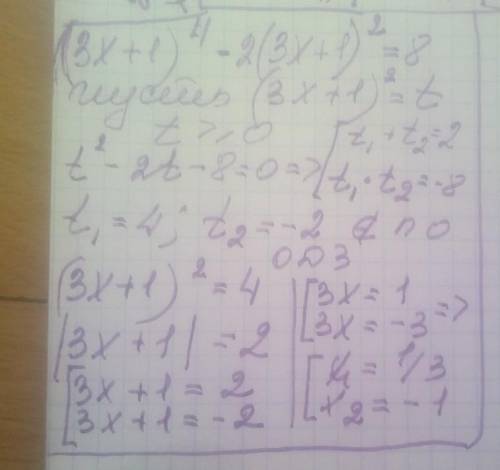 (3x+1)⁴ - 2(3x+1)² = 8
Пусть (3x+1)² = t
t ≥ 0
t² - 2t - 8 = 0 => [t₁ + t₂ = 2
t₁ · t₂ = -8
t₁ = 4; t₂ = -2 ∉ по
ОДЗ
(3x+1)² = 4
|3x+1| = 2
[3x+1 = 2
3x+1 = -2
[3x = 1
3x = -3 =>
[x₁ = 1/3
x₂ = -1